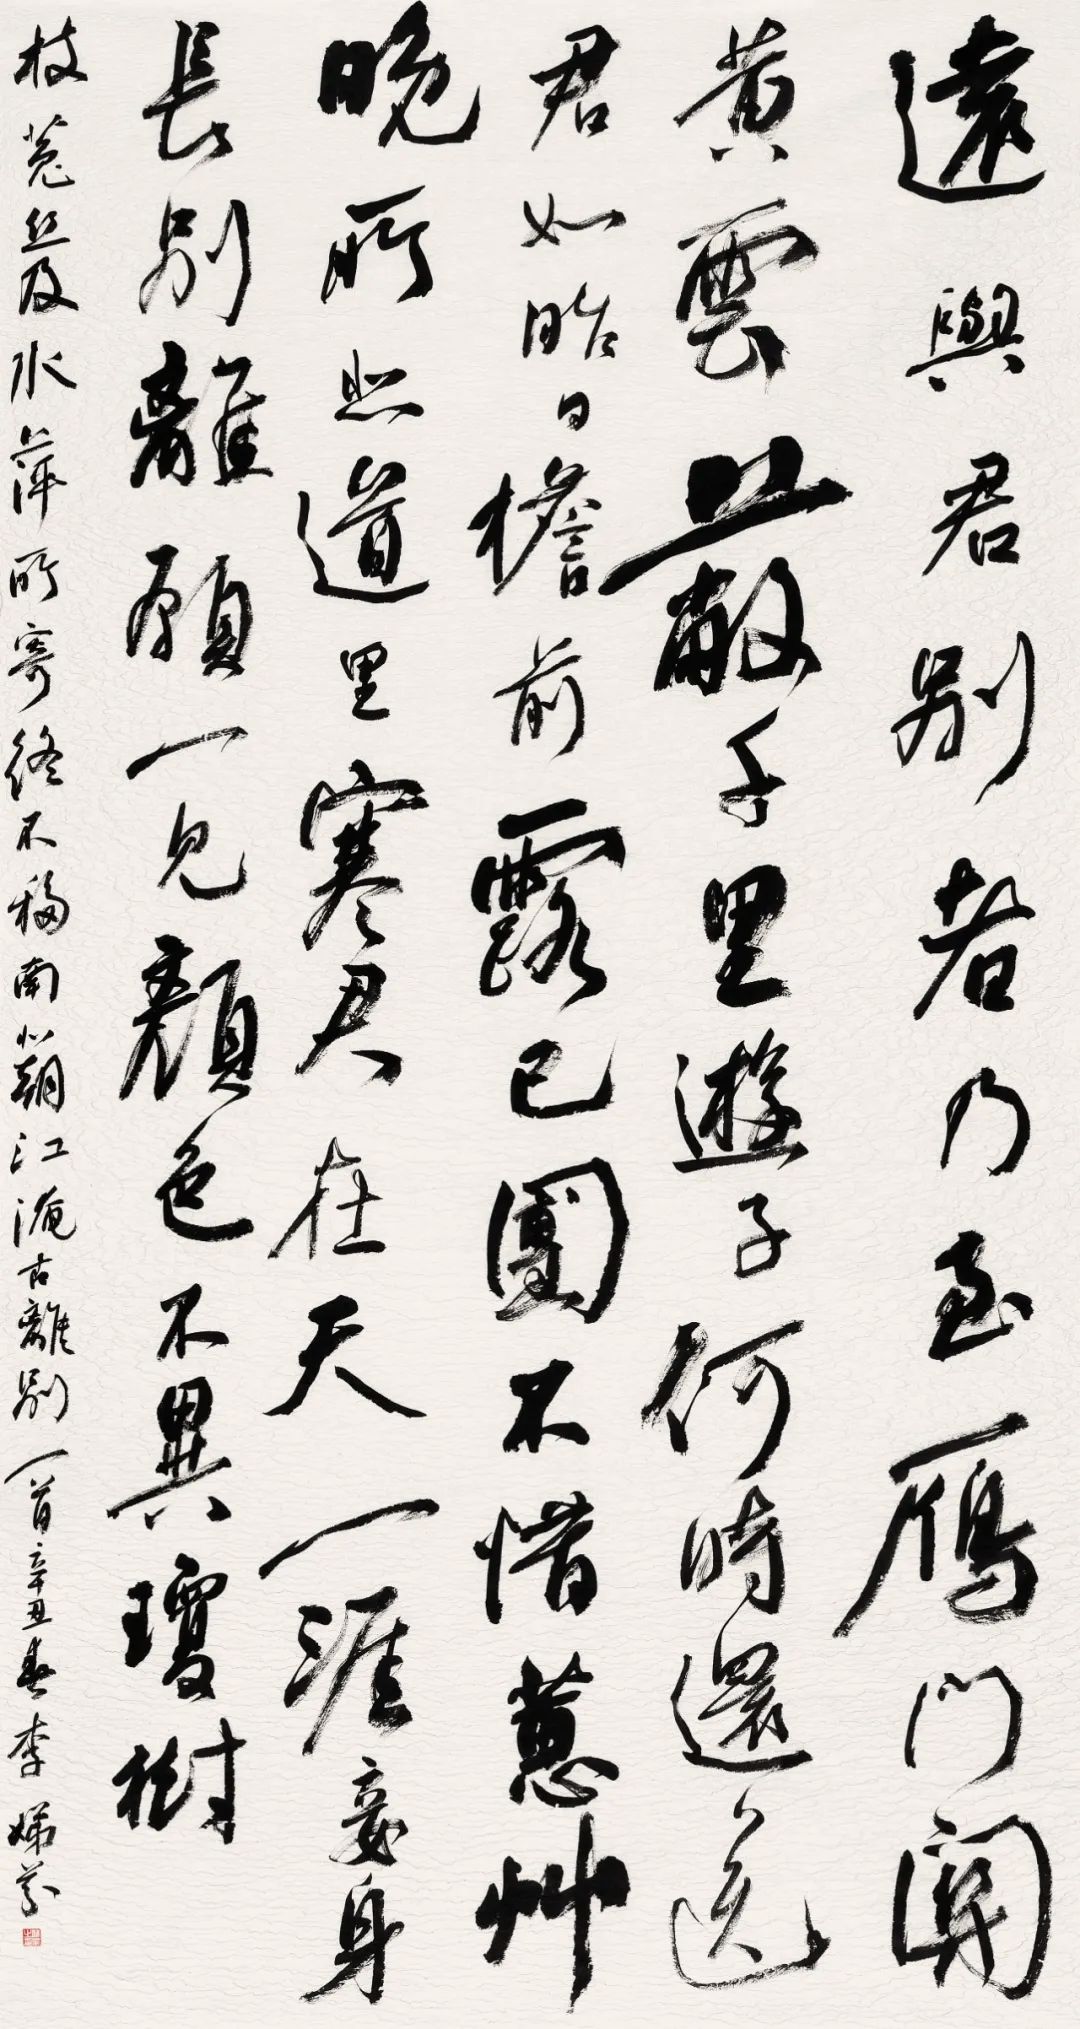 遠與君別者乃至鴈門關
黄雲蔽千里遊子何時還送
君如昨日檐前露已團不惜蕙艸
晚所悲道里寒君在天一涯妾身
長別離願一見顏色不異瓊樹
枝菟丝及水萍所寄終不移南北朝江淹古離別一首辛丑春李